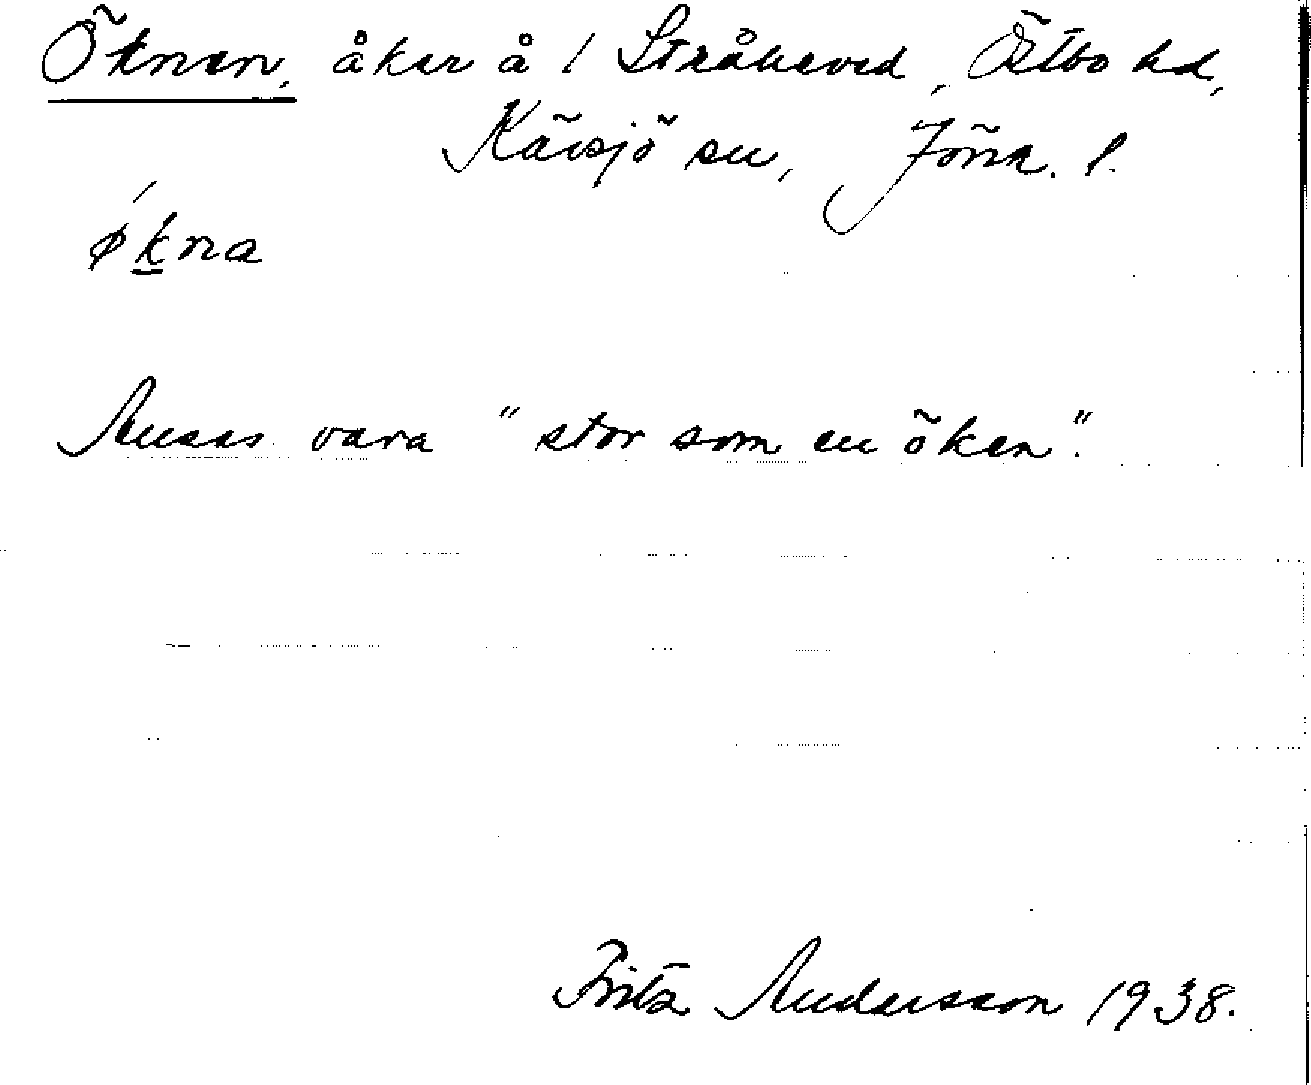 Öknen, åker å 1 Stråkeved, Östbo hd,
Kävsjö sn, Jönk. l.
økna
Anses vara "stor som en öken".
Fritz Andersson 1938.